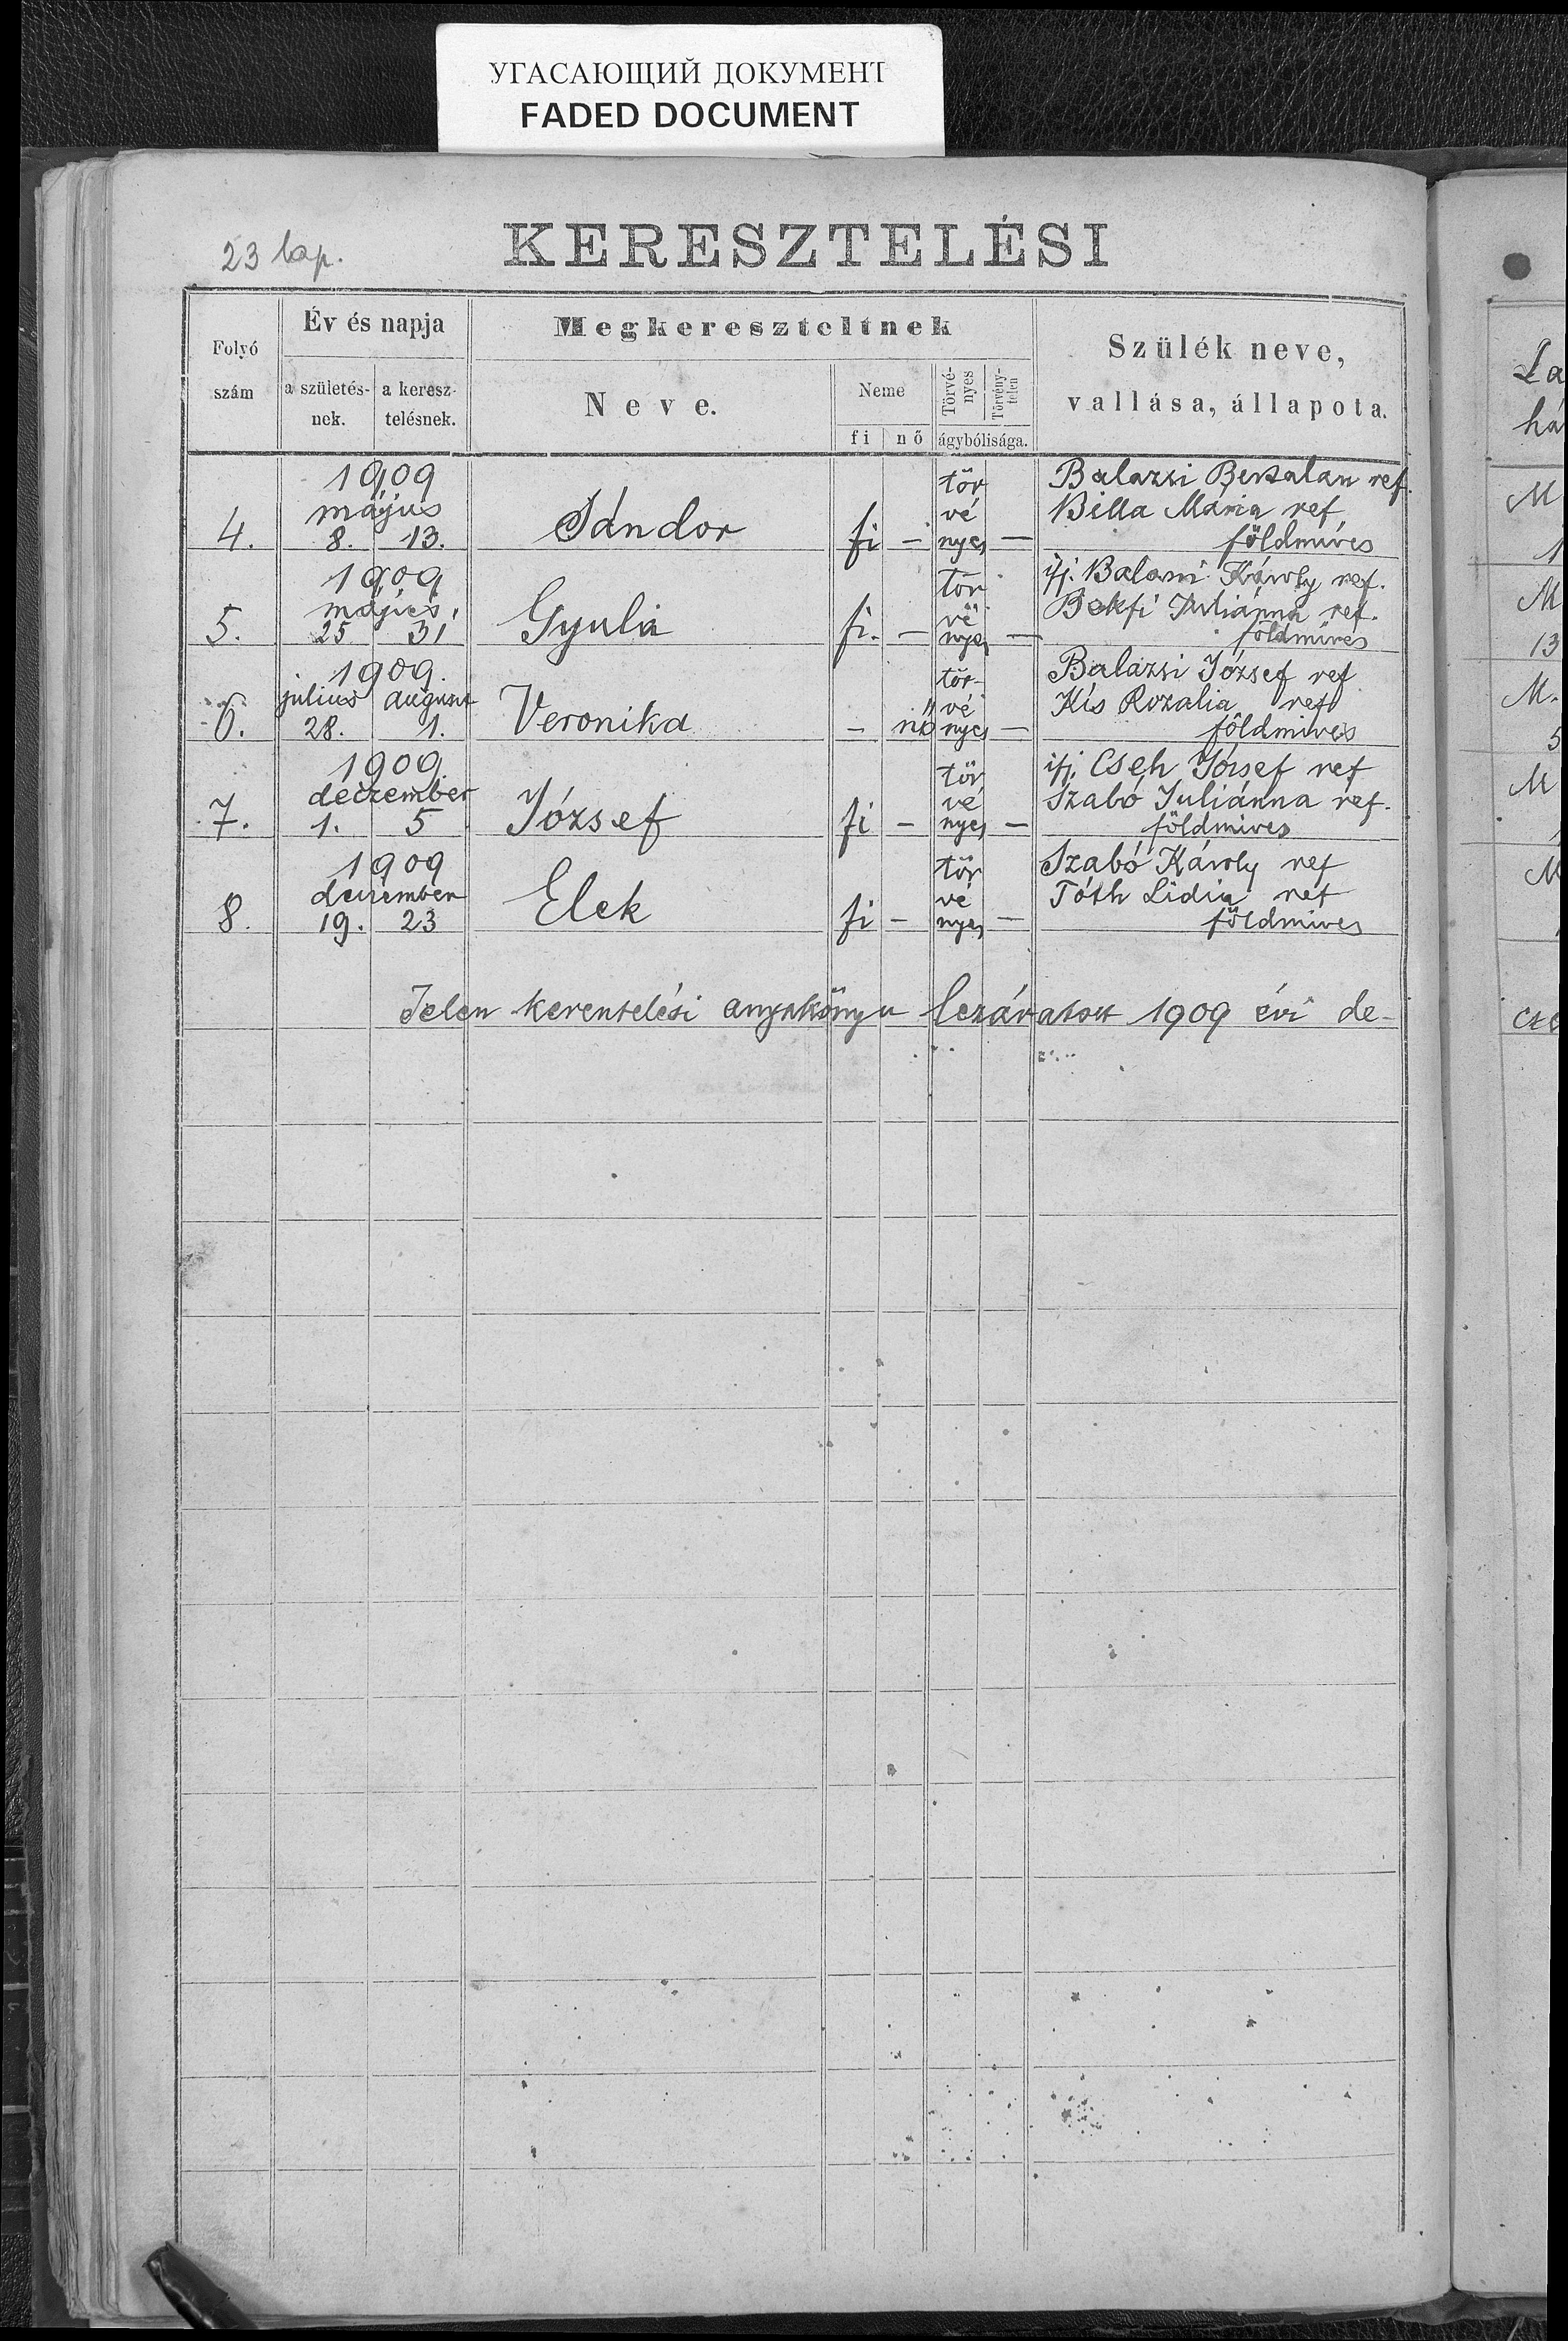 УГАСАЮЩИЙ ДОКУМЕНТ
FADED DOCUMENT
23 lap.
KERESZTELÉSI
Folyó
szám
Év és napja
a születés-
nek.
a keresz-
telésnek.
Megkereszteltnek
Neve.
Neme
fi
nő
Törvé-
nyes
Törvény-
telen
ágybólisága.
Szülék neve,
vallása, állapota.
1909
május
4. 8. 13. Sándor fi — tör
vé
nyes —
Balazsi Bertalan ref.
Billa Mária ref
földmíves
1909
május,
5. 25 31 Gyula fi. — tör
vé
nyes —
ifj. Balazsi Károly ref.
Bekfi Juliánna ref.
földmíves
1909.
julius august
6. 28. 1. Veronika — nő tör-
vé
nyes —
Balázsi József ref
Kis Rozalia ref
földmives
1909.
deczember
7. 1. 5 József fi — tör
vé
nyes —
ifj. Cseh József ref
Szabó Juliánna ref.
földmives
1909
deczember
8. 19. 23 Elek fi — tör
vé
nyes —
Szabó Károly ref
Tóth Lidia ref
földmives
Jelen keresztelési anyakönyv lezáratott 1909 évi de-
La
há
M
1
M
13
M.
5
M
M
cze